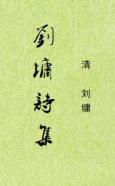 劉墉詩集
清 刘墉